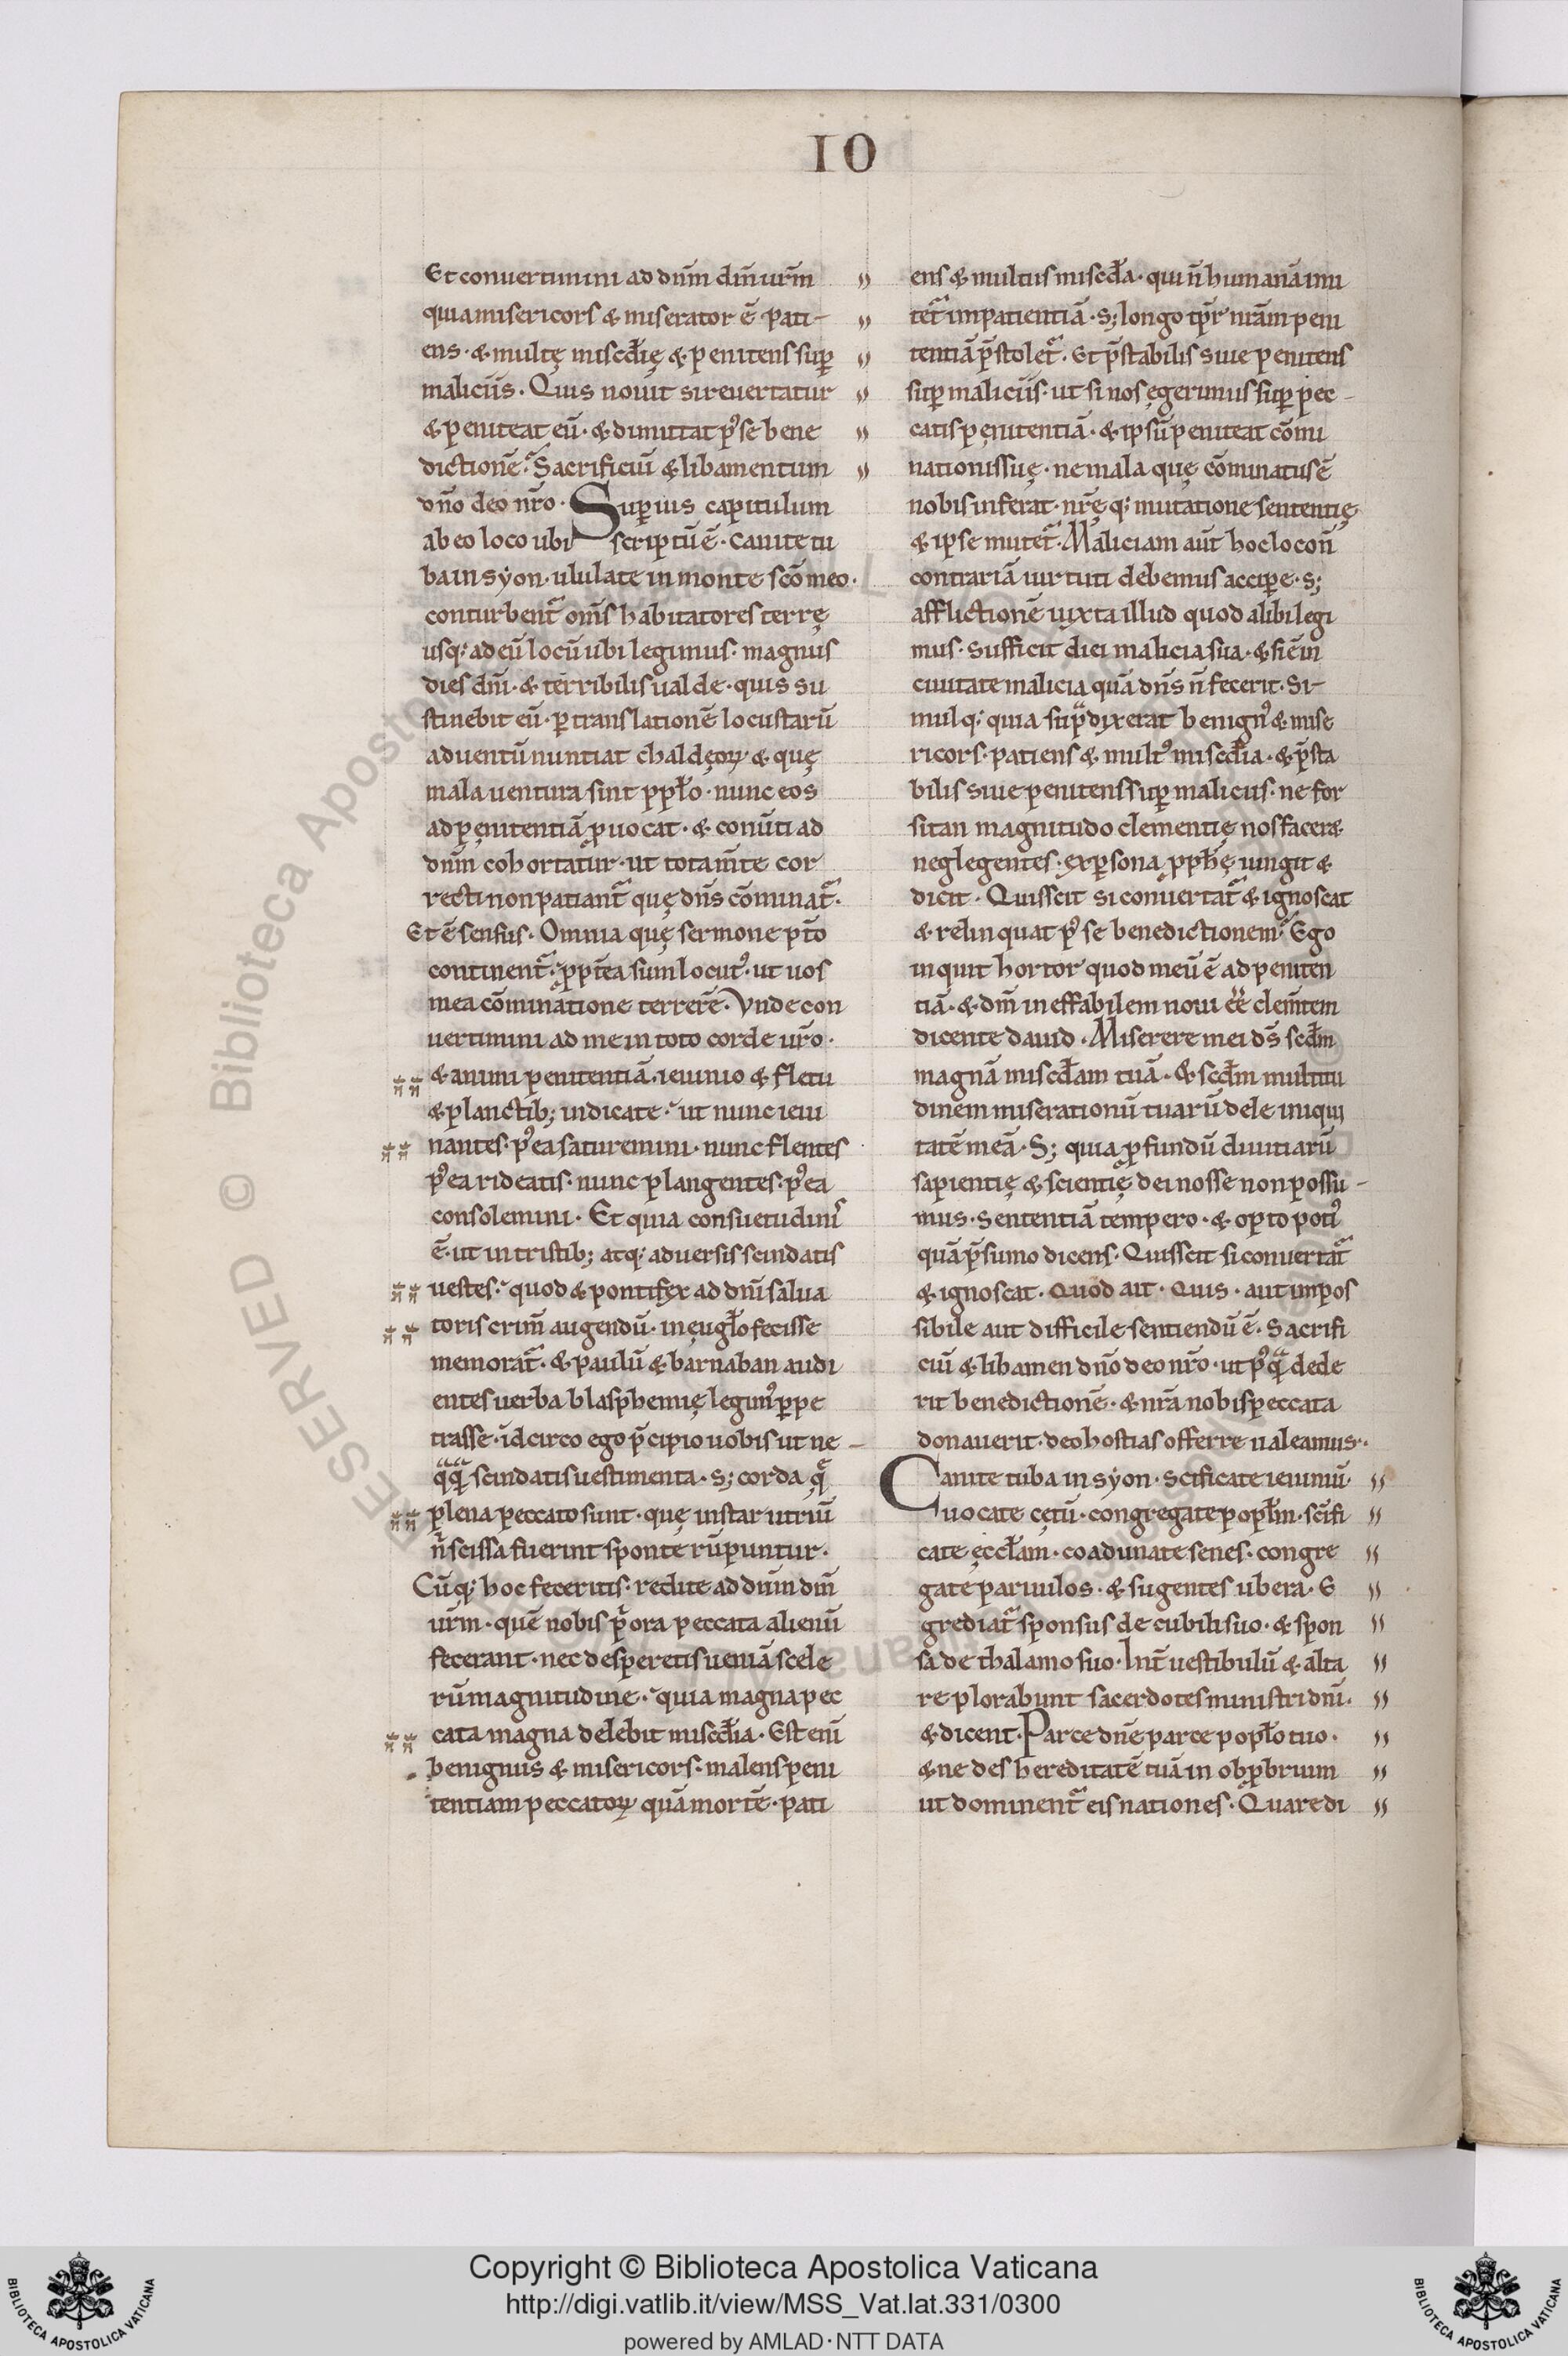 IO
Et conuertimini ad dnm̄ dm̄ urm̄
quia misericors & miserator ē· pati-
ens· & multę misc̄dię & penitens suꝑ
maliciis. Quis nouit si reuertatur
& peniteat eū· & dimittat pꝰ se bene
dictionē. Sacrificiū & libamentum
dn̄o deo nr̄o· Suꝑius capitulum
ab eo loco ubi scriptū ē· Canite tu
ba in syon· ululate in monte sc̄o meo·
conturbent᷑ om̄s habitatores terrę
usq; ad eū locū ubi legimus· magnus
dies dn̄i· & terribilis ualde· quis su
stinebit eū· ꝑ translationē locustarū
aduentū nuntiat chaldęoꝝ & quę
mala uentura sint pp̄lo· nunc eos
ad pęnitentiā ꝓuocat· & conūti ad
dnm̄ cohortatur· ut tota m̄te cor
recti non patiant᷑ quę dn̄s cōminat᷑·
Et ē sensus. Omnia quę sermone pt̄o
continent᷑· ꝓpt̄ea sum locutꝰ· ut uos
mea cōminatione terrerē. Vnde con
uertimini ad me in toto corde ur̄o·
& animi penitentiā· ieiunio & fletu
& planctib; indicate· ut nunc ieiu
nantes· pꝰea saturemini· nunc flentes
pꝰea rideatis· nunc plangentes· pꝰea
consolemini. Et quia consuetudinis
ē· ut in tristib; atq; aduersis scindatis
uestes· quod & pontifex ad dn̄i salua
toris crim̄ augendū· in eugl̄o fecisse
memorat᷑· & paulū & barnaban audi
entes uerba blasphemię legimꝰ ꝑpe
trasse· idcirco ego p̄cipio uobis ut ne-
q̄q̄ scindatis uestimenta· s; corda q̄
plena peccato sunt· quę instar utriū
n̄ scissa fuerint sponte rūpuntur·
Cūq; hoc feceritis· redite ad dnm̄ dm̄
urm̄· quē nobis p̄ora peccata alienū
fecerant· nec desperetis ueniā scele
rū magnitudine· quia magna pec
cata magna delebit misc̄dia· Est eni
benignus & misericors· malens peni
tentiam peccatoꝝ quā mortē· pati
ens & multus misc̄dia· qui n̄ humanā imi
tet᷑ impatientiā· s; longo tp̄r nr̄am peni
tentiā p̄stolet᷑. Et p̄stabilis siue penitens
suꝑ maliciis· ut si nos ęgerimus suꝑ pec-
catis pęnitentiā· & ipsū peniteat cōmi
nationis suę· ne mala quę cōminatus ē
nobis inferat· nr̄ęq; mutatione sententię
& ipse mutet᷑. Maliciam aut̄ hoc loco n̄
contrariā uirtuti debemus acciꝑe· s;
afflictionē iuxta illud quod alibi legi
mus· Sufficit diei malicia sua· & si ē in
ciuitate malicia quā dn̄s n̄ fecerit· Si-
mulq; quia sup̄ dixerat benignꝰ & mise
ricors· patiens & multꝰ misc̄dia· & p̄sta
bilis siue penitens suꝑ maliciis· ne for
sitan magnitudo clementię nos facer&
neglegentes· ex ꝑsona ꝓph̄ę iungit &
dicit· Quis scit si conuertat᷑ & ignoscat
& relinquat pꝰ se benedictionem· Ego
inquit hortor quod meū ē ad peniten
tiā· & dm̄ ineffabilem noui ēē clem̄tem
dicente dauid· Miserere mei ds̄ scd̄m
magnā misc̄dam tuā· & scd̄m multitu
dinem miserationū tuarū dele iniqui
tatē meā· S; quia ꝓfundū diuitiarū
sapientię & scientię dei nosse non possu-
mus· sententiā tempero· & opto potiꝰ
quā p̄sumo dicens· Quis scit si conuertat᷑
& ignoscat· Quod ait· Quis· aut impos
sibile aut difficile sentiendū ē· Sacrifi
ciū & libamen dn̄o deo nr̄o· ut pꝰq̄ dede
rit benedictionē· & nr̄a nobis peccata
donauerit· deo hostias offerre ualeamus·
Canite tuba in syon· scificate ieiuniū·
uocate cętū· congregate popl̄m· scīfi
cate ęccl̄am· coadunate senes· congre
gate paruulos· & sugentes ubera· E
grediat᷑ sponsus de cubili suo· & spon
sa de thalamo suo· Int̄ uestibulū & alta
re plorabunt sacerdotes ministri dn̄i·
& dicent· Parce dn̄e parce popl̄o tuo·
& ne des hereditatē tuā in obꝓbrium
ut dominent᷑ eis nationes· Quare di
RESERVED © Biblioteca Apostolica Vaticana
Copyright © Biblioteca Apostolica Vaticana
http://digi.vatlib.it/view/MSS_Vat.lat.331/0300
powered by AMLAD·NTT DATA
BIBLIOTECA APOSTOLICA VATICANA
BIBLIOTECA APOSTOLICA VATICANA